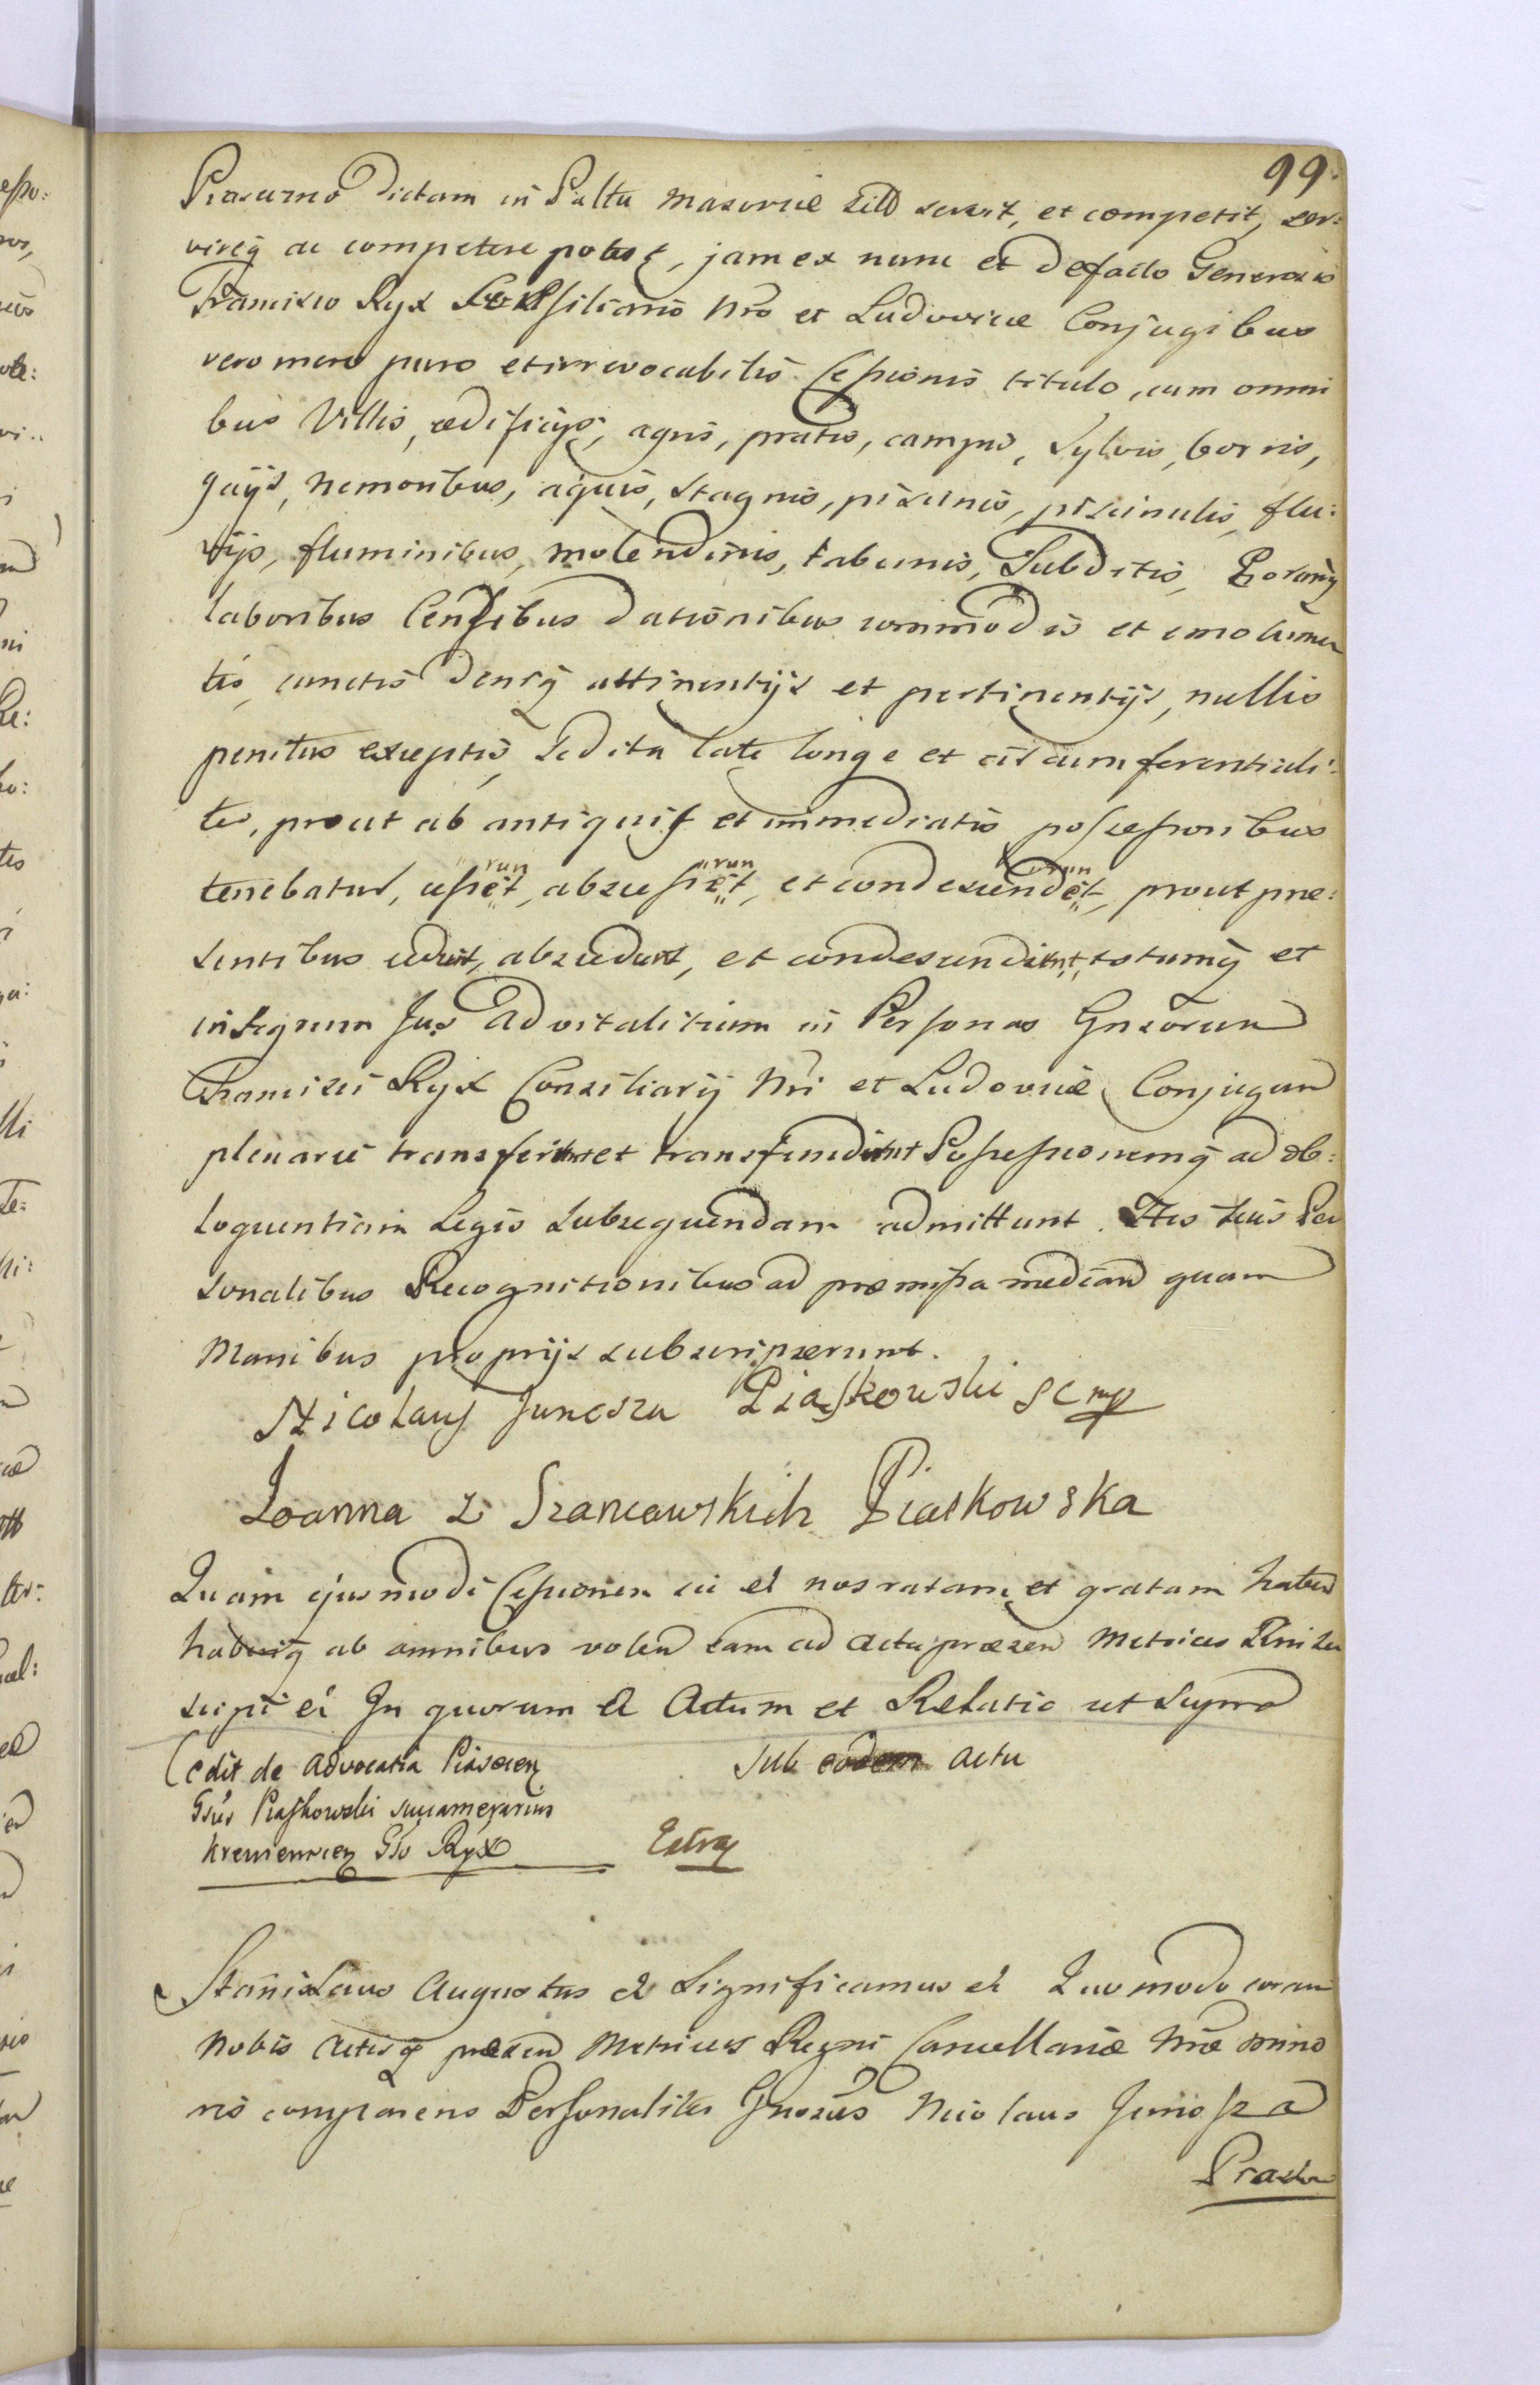 99.
Piaseczno dictam in Paltu Masoviæ servit, et competit, ser:
vireq̃ ac competere potest, jam ex nunc et de facto Generosis
Francisco Ryx Consiliario Nrõ et Ludovicæ Conjugibus
vero mero puro et irrevocabilis Cessionis titulo, cum omni
bus Villis, ædificijs, agris, pratis, campis, sylvis, borris,
gaijs, nemoribus, aquis, stagnis, piscinis, piscinulis, flu:
vijs, fluminibus, molendinis, tabernis, Subditis,
laboribus Censibus dationibus commodis et emolumen
tis, cunctis deniq̃ attinentijs et pertinentijs, nullis
penitus exceptis, sed ita late longe et circumferentiali:
ter, prout ab antiquis et immediatis possessoribus
tenebatur, cessêt, abscessêt, et condescendêt, prout præ:
run erun erun
sentibus cedunt, abscedunt, et condescendunt, totumq̃ et
integrum Jus advitalitium in Personas Gnsorum
Francisci Ryx Consiliarij Nri et Ludovicæ Conjugum
plenarie transferunt et transfundunt Possessionemq̃ ad ob:
loquentiam Legis subsequendam admittunt. His suis Per
sonalibus Recognitionibus ad præmissa median quam
Manibus proprijs subscripserunt.
Nicolaus Junosza Piaskowski SC mp
Joanna z Szaniawskich Piaskowska
Quam ejusmodi Cessionem uti et nos ratam et gratam haben
haberiq̃ ab omnibus volen eam ad Acta præsen Metrices Rni
scipi In quorum & Actum et Relatio ut supra
Cedit de Advocatia Piasecen
Gsus Piaskowski succamerarius
Kremenecen Gso Ryx
sub eodem actu
Extra
Stanislaus Augustus & Significamus & Quomodo coram
Nobis Actisq̃ præsen Metrices Regni Cancellariæ Nræ mino
ris comparens Personaliter Gnosus Nicolaus Junosza
Piasko